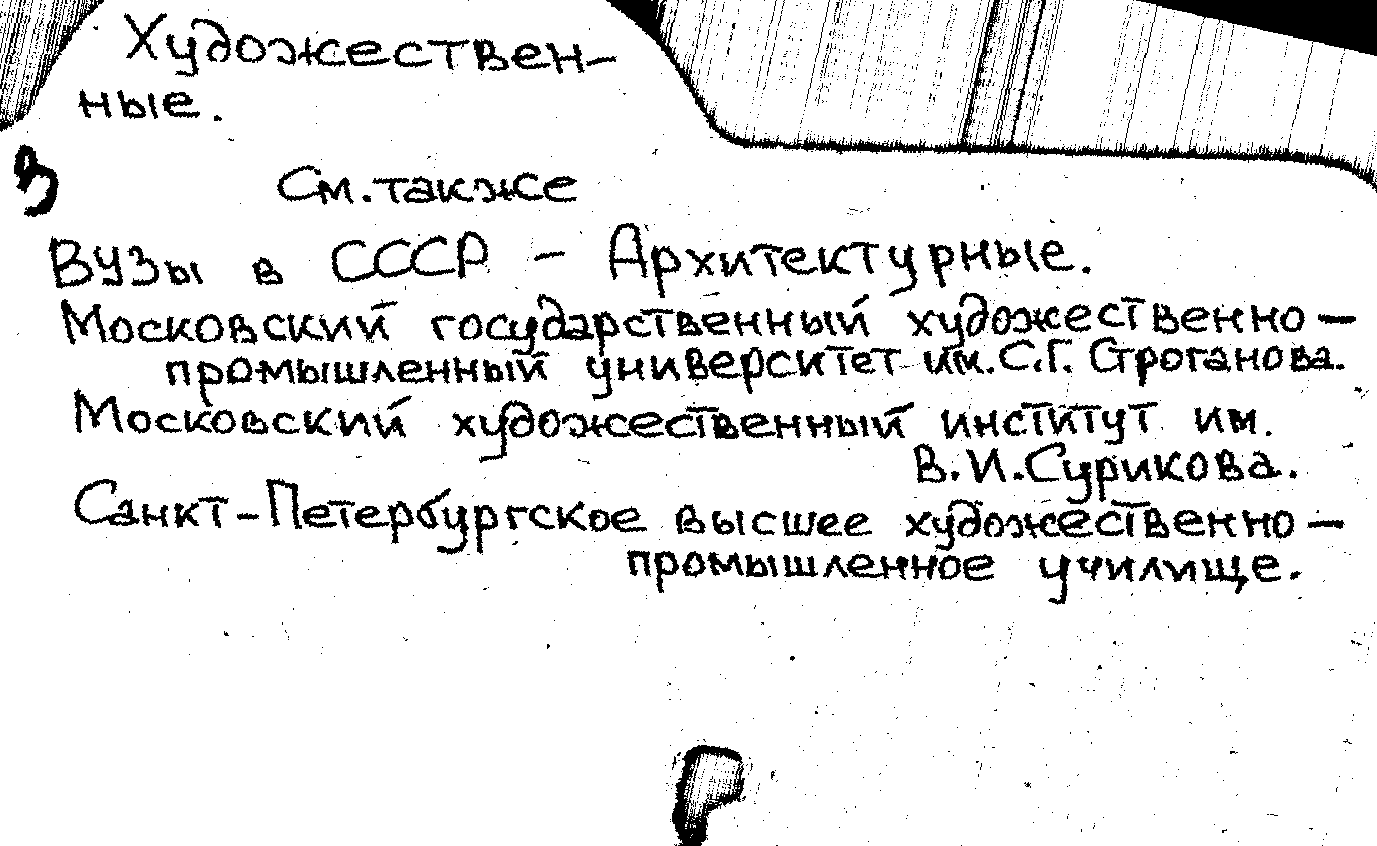 Художествен-
ные.
См. также
ВУЗы в СССР - Архитектурные.
Московский государственный художественно-
промышленный университет им. С.Г. Строганова.
Московский художественный институт им.
В.И. Сурикова.
Санкт-Петербургское высшее художественно-
промышленное училище.